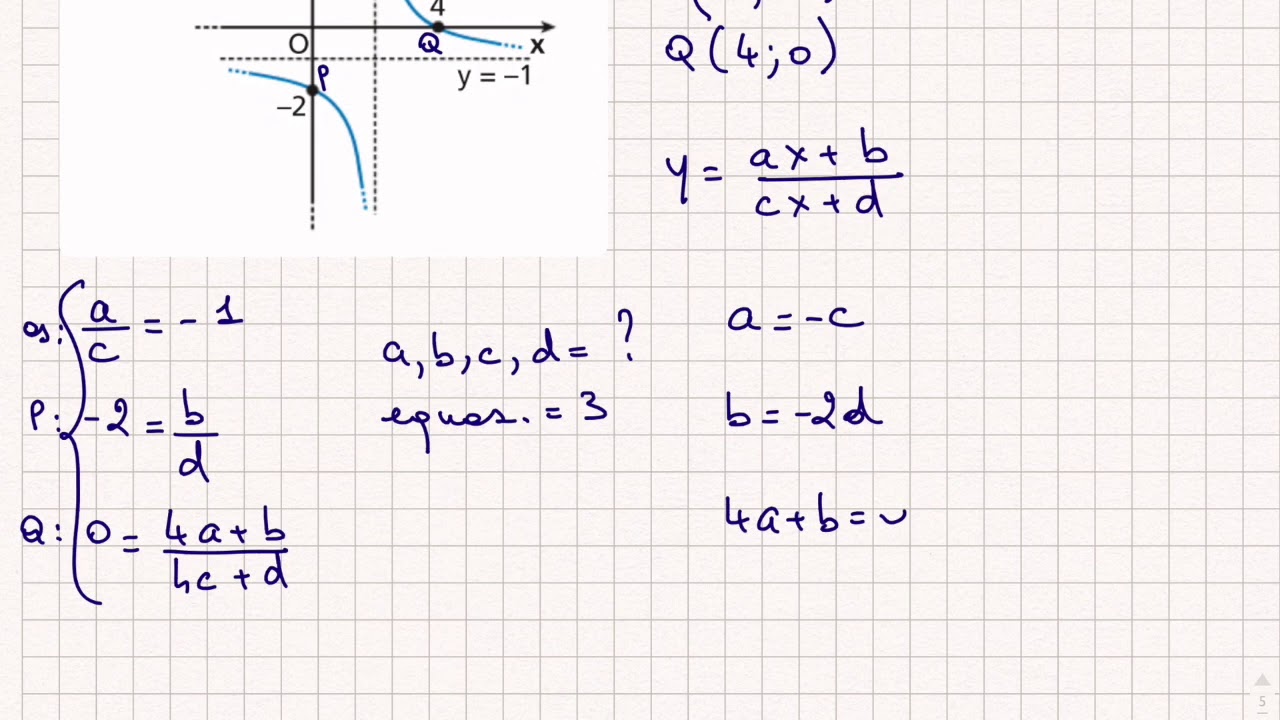 4
O
Q
x
P
y = –1
–2
Q(4;0)
y = (ax + b)/(cx + d)
as: a/c = -1
P: -2 = b/d
Q: 0 = (4a + b)/(4c + d)
a, b, c, d = ?
equas. = 3
a = -c
b = -2d
4a + b =
5